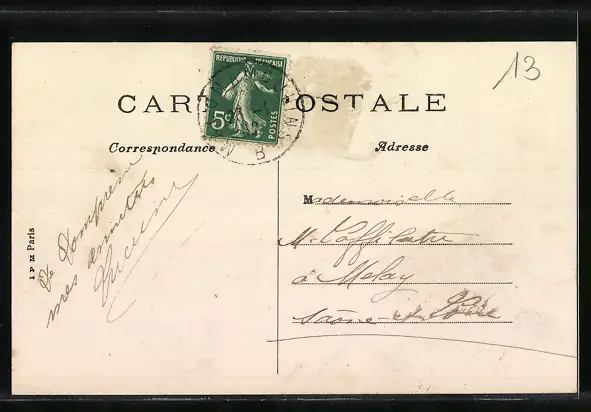 13
REPUBLIQUE FRANÇAISE
5c POSTES
CARTE POSTALE
Correspondance
Adresse
De Dompierre
mes amitiés
Mademoiselle
M.
à Melay
Saône-et-Loire
I P M Paris